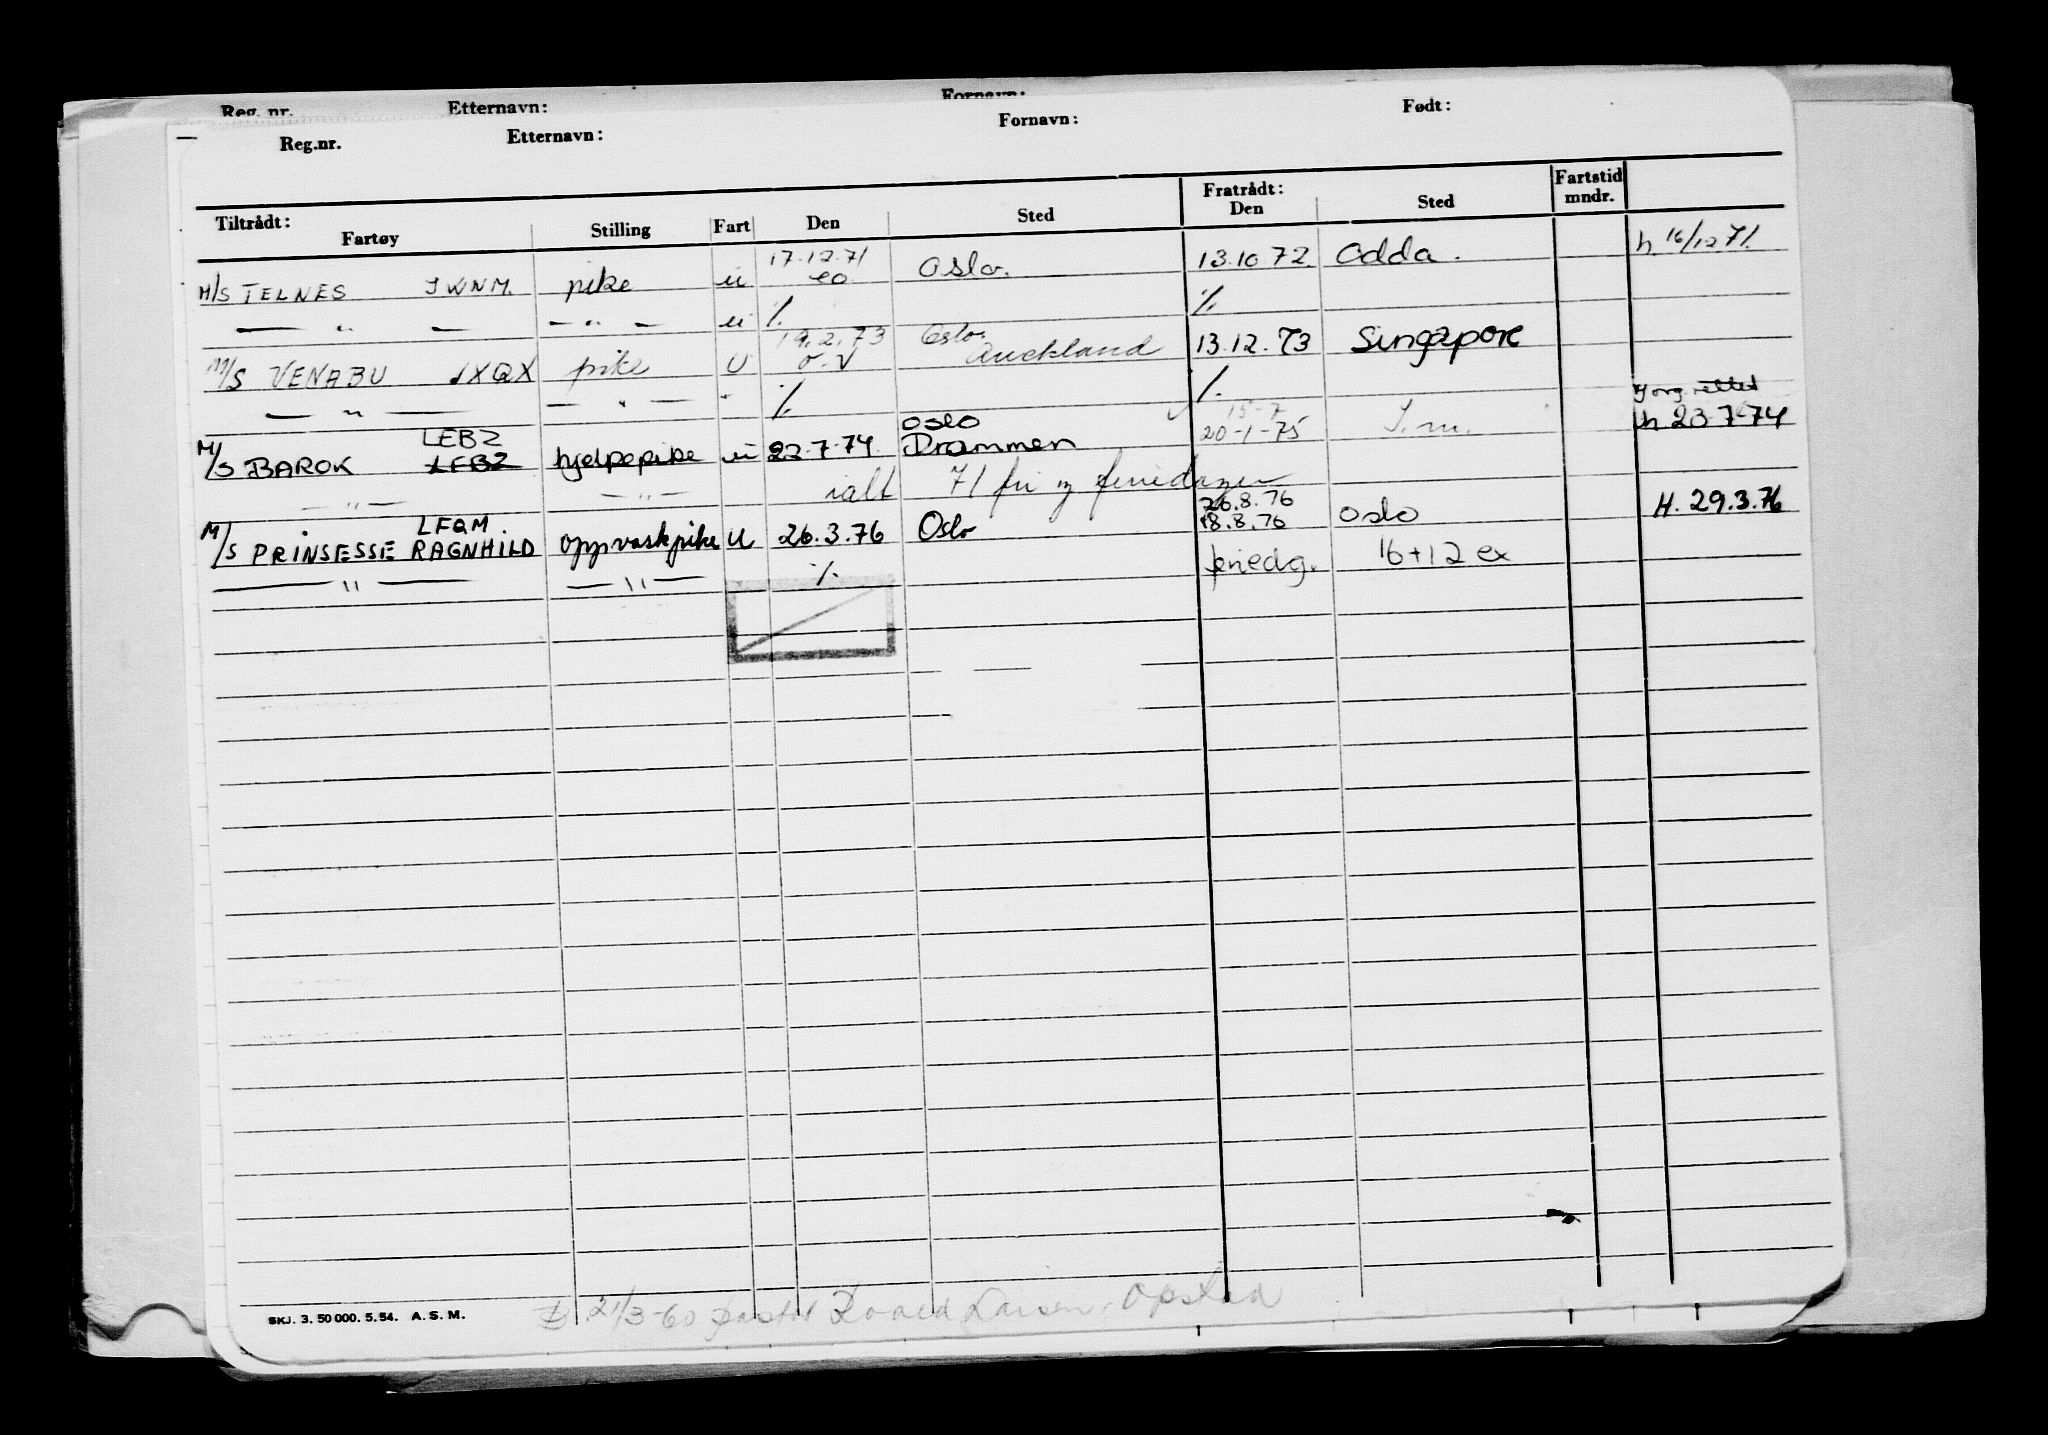 Reg. nr. Etternavn: Fornavn:
Reg.nr. Etternavn: Fornavn: Født:
Tiltrådt: Fartøy Stilling Fart Den Sted Fratrådt: Den Sted Fartstid mndr.
17.12.71
M/S TELNES JWNM. pike u Oslo. 13.10.72 Odda. h. 16/12 71.
— " — — " — u ٪ ٪
19.2.73 Oslo.
M/S VENABU JXQX pike U Auckland 13.12.73 Singapore
— " — — " — " ٪ ٪
LEBZ oslo 15-7
M/S BAROK LEBZ hjelpepike u 22.7.74. Drammen 20-1-75 h 23.7-74
— " — — " — ialt 71 fri og feriedager
LFQM. 26.8.76
M/S PRINSESSE RAGNHILD oppvaskpike U 26.3.76 Oslo 18.8.76 oslo H. 29.3.76
— " — — " — ٪ feriedg. 16+12 ex
SKJ. 3. 50 000. 5. 54. A. S. M.
21/3-60 Larsen, Opstad